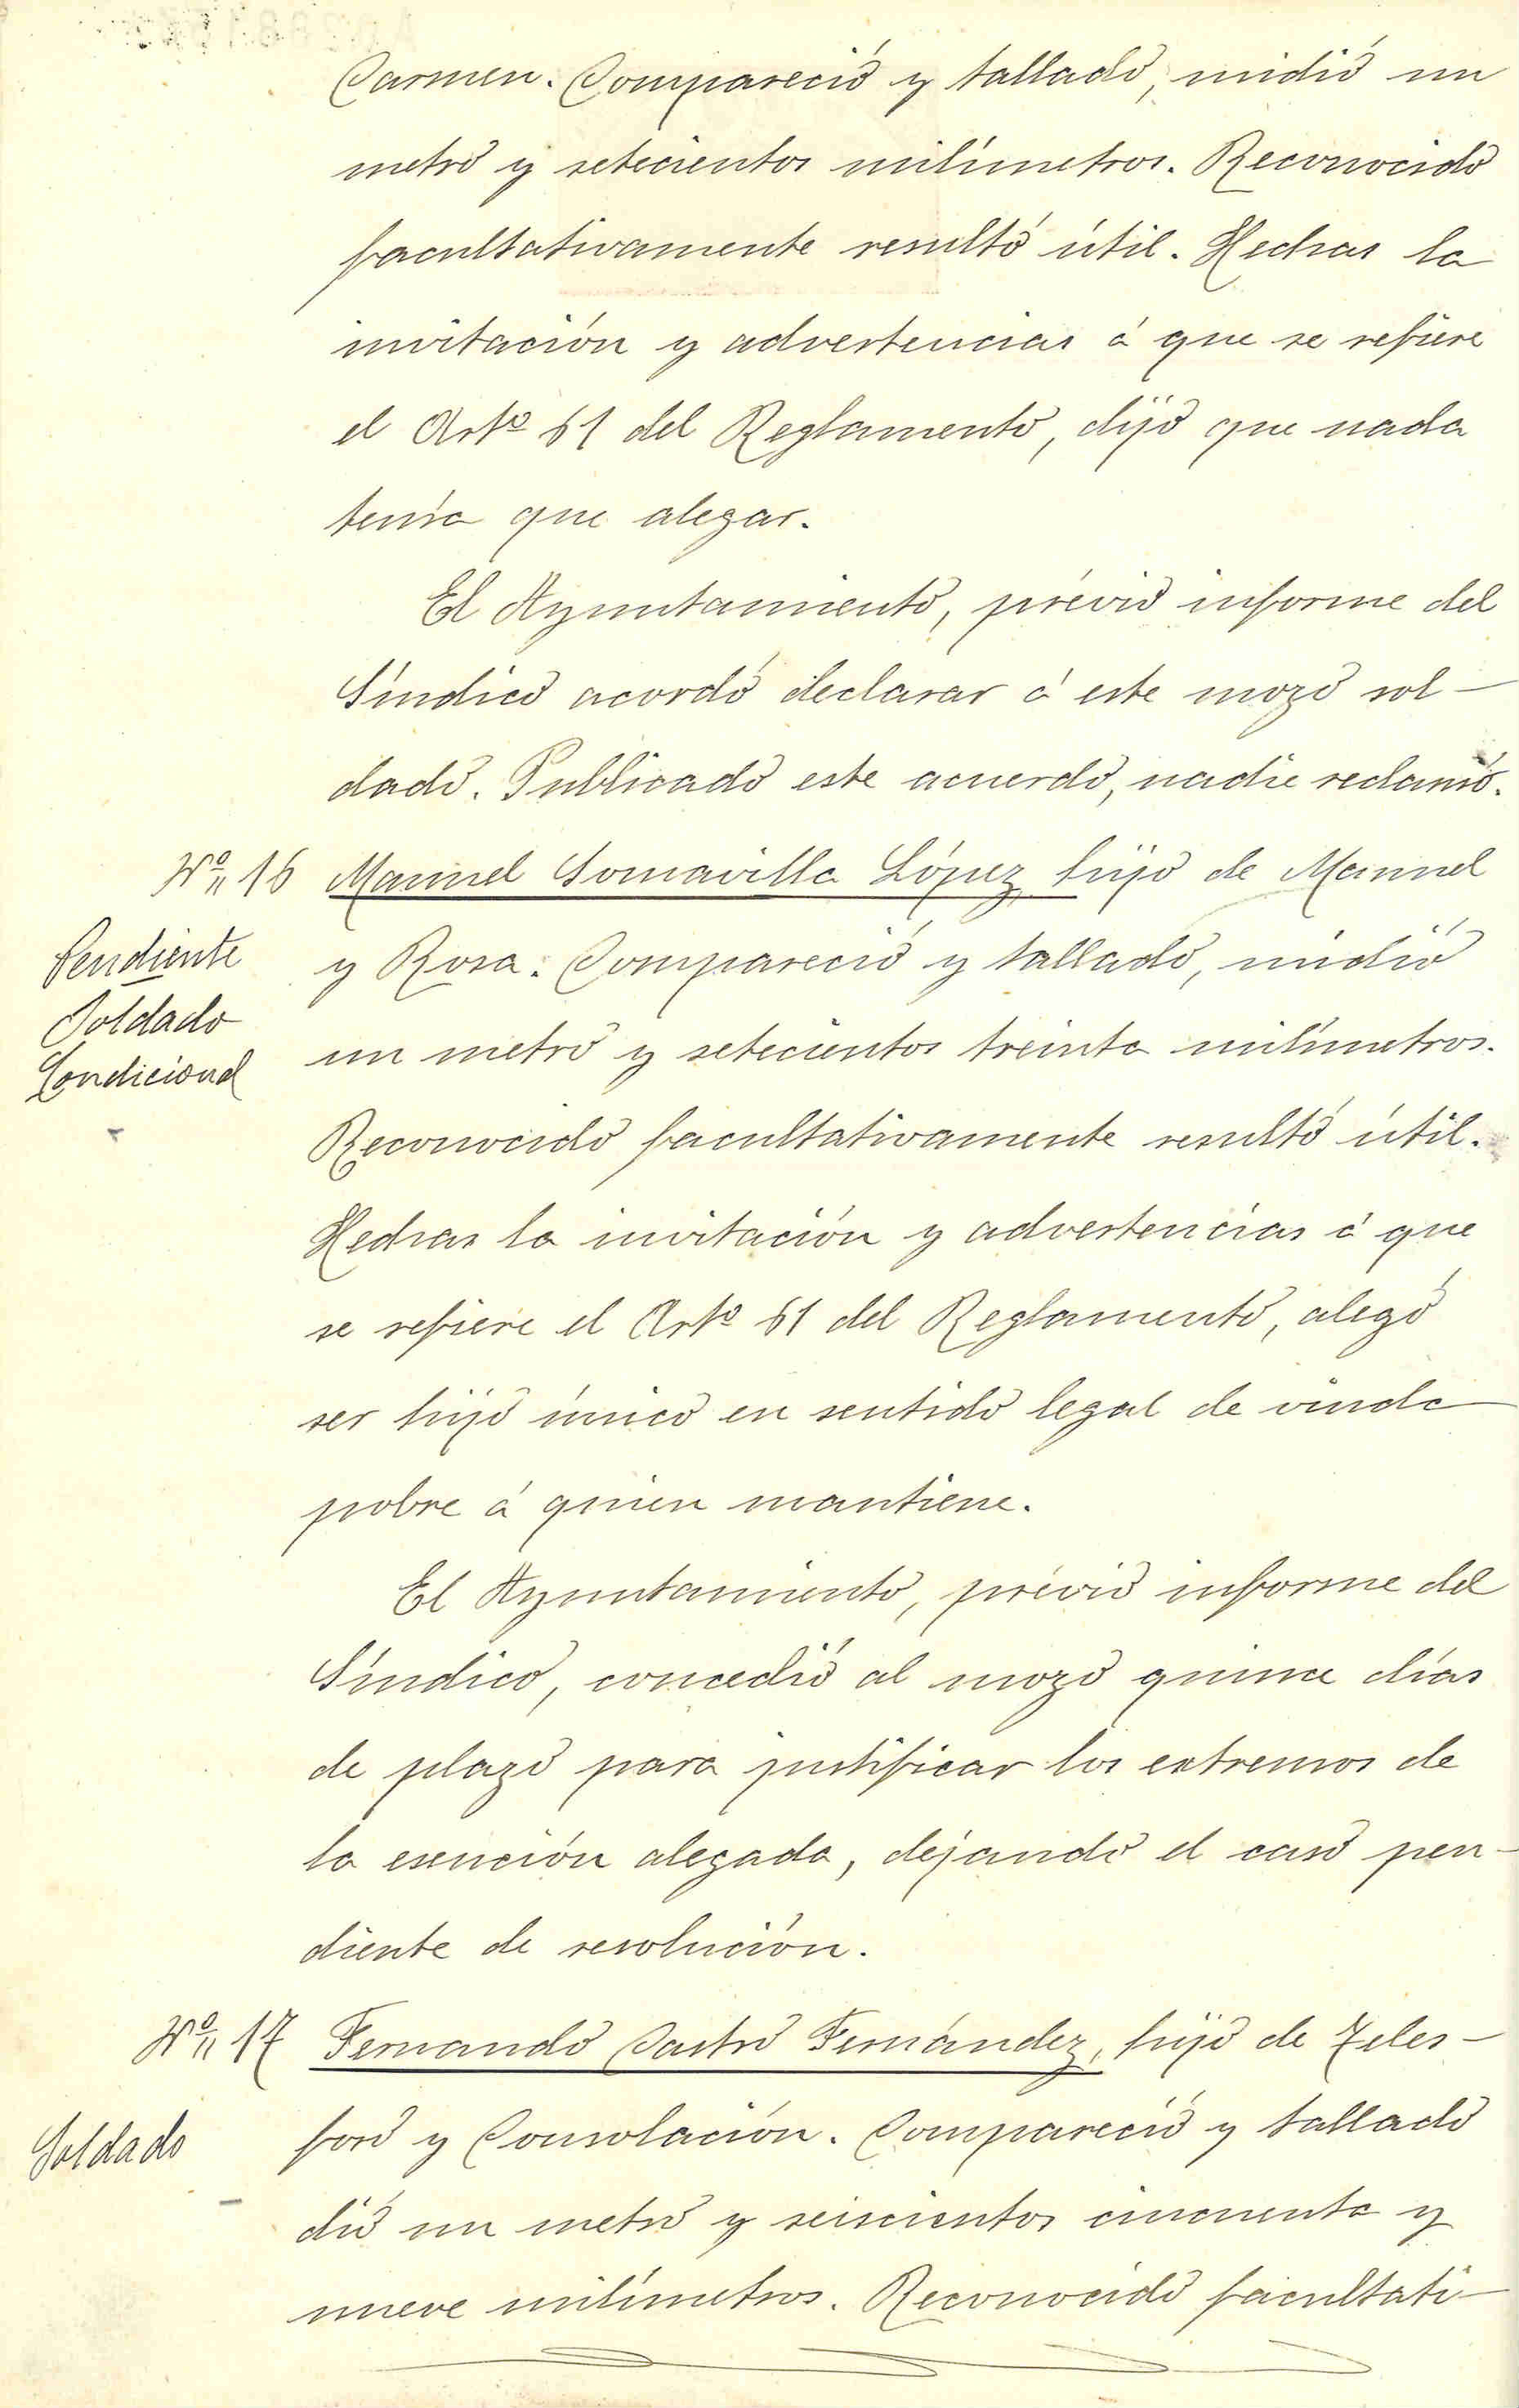 Carmen. Compareció y tallado, midió un
metro y setecientos milímetros. Reconocido
facultativamente resultó útil. Hechas la
invitación y advertencias á que se refiere
el Artº 61 del Reglamento, dijo que nada
tenía que alegar.
El Ayuntamiento, prévio informe del
Síndico acordó declarar á este mozo sol-
dado. Publicado este acuerdo, nadie reclamó.
Nº 16 Manuel Somavilla López, hijo de Manuel
Pendiente
Soldado
Condicional
y Rosa. Compareció y tallado, midió
un metro y setecientos treinta milímetros.
Reconocido facultativamente resultó útil.
Hechas la invitación y advertencias á que
se refiere el Artº 61 del Reglamento, alegó
ser hijo único en sentido legal de viuda
pobre á quien mantiene.
El Ayuntamiento, prévio informe del
Síndico, concedió al mozo quince días
de plazo para justificar los extremos de
la exención alegada, dejando el caso pen-
diente de resolución.
Nº 17 Fernando Castro Fernández, hijo de Teles-
Soldado
foro y Consolación. Compareció y tallado
dió un metro y seiscientos cincuenta y
nueve milímetros. Reconocido facultati-